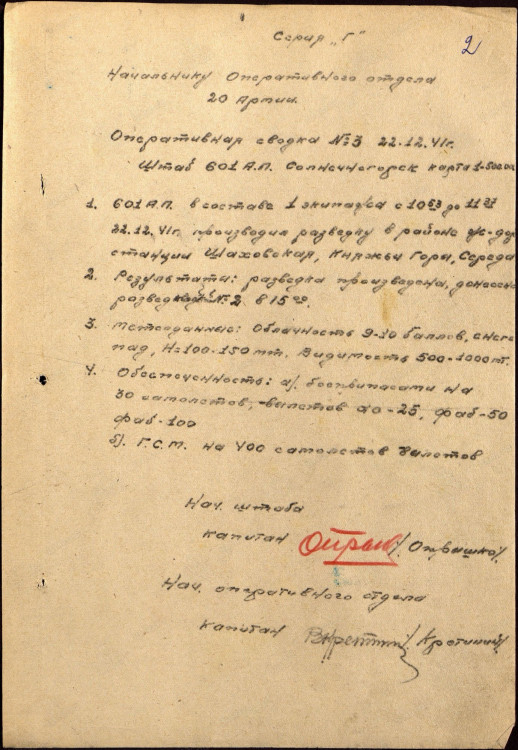 Серия „Г"
2
Начальнику Оперативного отдела
20 Армии.
Оперативная сводка №3 22.12.41г.
Штаб 601 А.П. Солнечногорск карта 1-500.000
1. 601 А.П. в составе 1 экипажа с 10 до 11
22.12.41г. производил разведку в районе ж-дор
станции Шаховская, Княжьи Горы, Середа
2. Результаты: разведка произведена, донесение
№2 в 15
3. Метеоданные: Облачность 9-10 баллов, снего
пад, Н=100-150 мт. Видимость 500-1000 мт.
4. Обеспеченность: а). боеприпасами на
30 самолетов, вылетов АО-25, фаб-50
фаб-100
б). Г.С.М. на 400 самолетов вылетов
Нач. штаба
Капитан /Опрышко/.
Нач. оперативного отдела
Капитан /Кретинин/